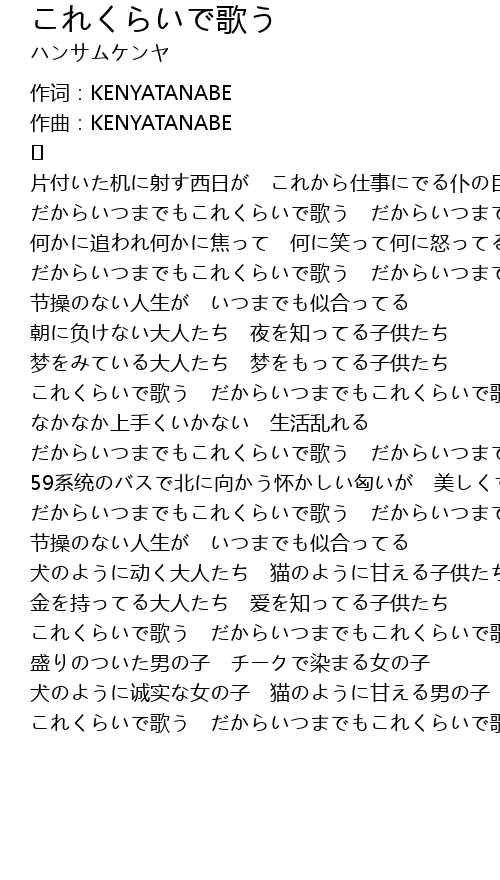 これくらいで歌う
ハンサムケンヤ
作词：KENYATANABE
作曲：KENYATANABE
[]
片付いた机に射す西日が　これから仕事にでる仆の
だからいつまでもこれくらいで歌う　だからいつまで
何かに追われ何かに焦って　何に笑って何に怒ってる
だからいつまでもこれくらいで歌う　だからいつまで
节操のない人生が　いつまでも似合ってる
朝に负けない大人たち　夜を知ってる子供たち
梦をみている大人たち　梦をもってる子供たち
これくらいで歌う　だからいつまでもこれくらいで歌
なかなか上手くいかない　生活乱れる
だからいつまでもこれくらいで歌う　だからいつまで
59系统のバスで北に向かう怀かしい匂いが　美しく
だからいつまでもこれくらいで歌う　だからいつまで
节操のない人生が　いつまでも似合ってる
犬のように动く大人たち　猫のように甘える子供たち
金を持ってる大人たち　爱を知ってる子供たち
これくらいで歌う　だからいつまでもこれくらいで歌
盛りのついた男の子　チークで染まる女の子
犬のように诚实な女の子　猫のように甘える男の子
これくらいで歌う　だからいつまでもこれくらいで歌